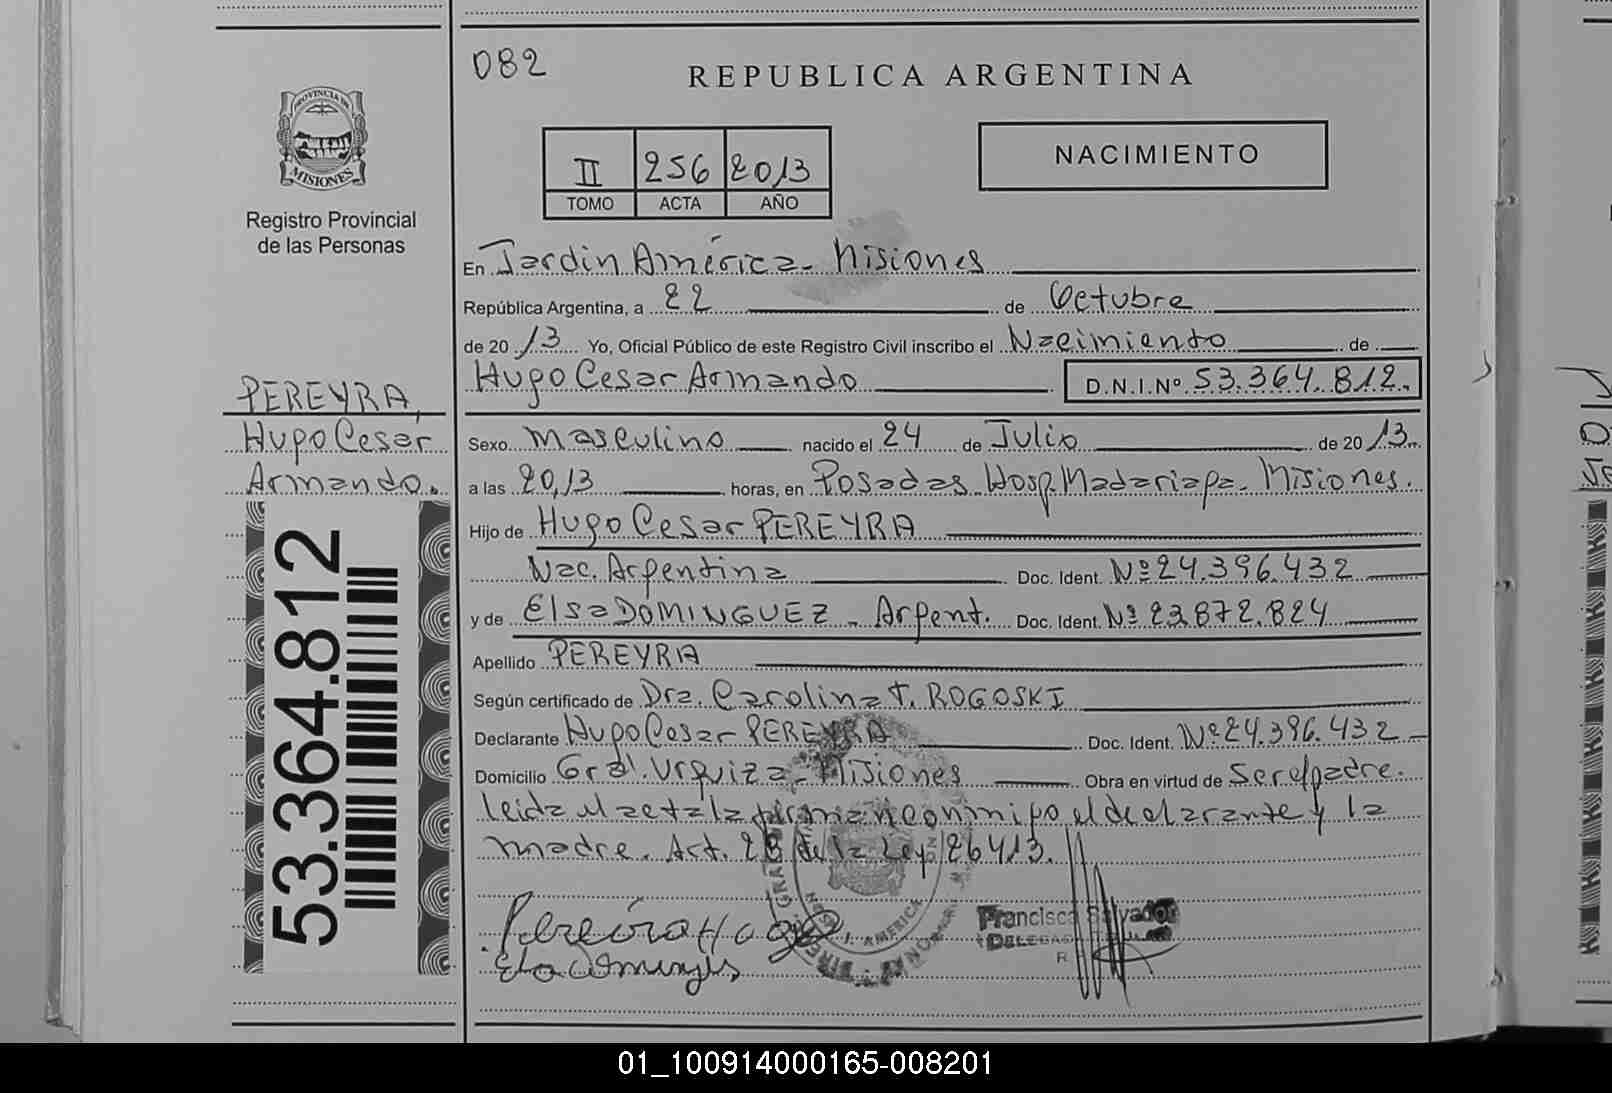 082
REPUBLICA ARGENTINA
PROVINCIA DE
MISIONES
Registro Provincial
de las Personas
II 256 2013
TOMO ACTA AÑO
NACIMIENTO
En Jardin América - Misiones
República Argentina, a 22 de Octubre
de 2013 Yo, Oficial Público de este Registro Civil inscribo el Nacimiento de
Hugo Cesar Armando D.N.I.Nº 53.364.812.
PEREYRA,
Hugo Cesar
Armando.
53.364.812
Sexo masculino nacido el 24 de Julio de 2013
a las 20,13 horas, en Posadas Hosp. Madariaga - Misiones.
Hijo de Hugo Cesar PEREYRA
Nac. Argentina Doc. Ident. Nº 24.396.432
y de Elsa DOMINGUEZ - Argent. Doc. Ident. Nº 23.872.824
Apellido PEREYRA
Según certificado de Dra. Carolina T. ROGOSKI
Declarante Hugo Cesar PEREYRA Doc. Ident. Nº 24.396.432
Domicilio Gral. Urquiza - Misiones Obra en virtud de Ser el padre.
leida el acta la firman conmigo el declarante y la
madre. Art. 28 de la Ley 26413.
Pereira Hugo
Francisco Salvador
J. AMERICA
01_100914000165-008201